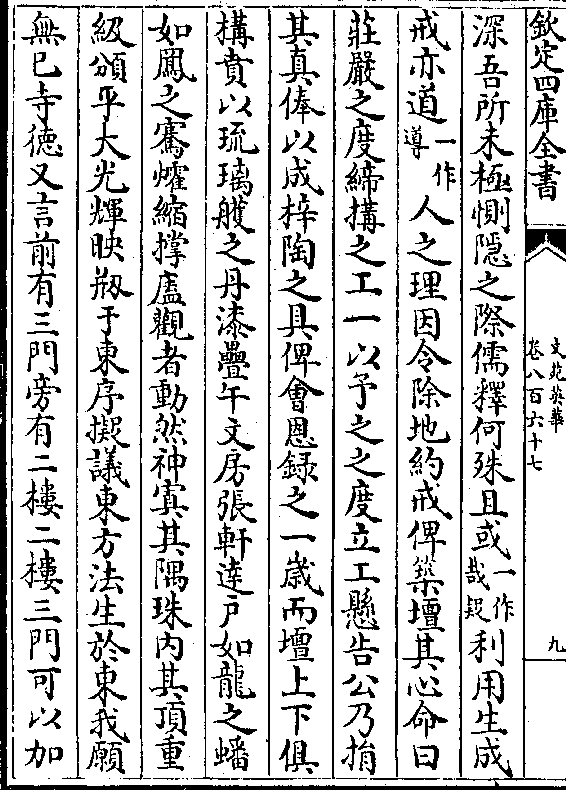 欽定四庫全書
文苑英華
卷八百六十七
九
深吾所未極惻隱之際儒釋何殊且或一作哉疑利用生成
戒亦道一作導人之理因令除地約戒俾築壇其心命曰
莊嚴之度締搆之工一以予之之度立工懸告公乃捐
其真俸以成梓陶之具俾會恩録之一歲而壇上下俱
構賁以琉璃雘之丹漆疊午文房張軒逹户如龍之蟠
如鳳之騫爟縮撑盧觀者動然神寘其隅珠内其頂重
級頒平大光輝映剏于東序擬議東方法生於東我願
無已寺德又言前有三門旁有二樓二樓三門可以加